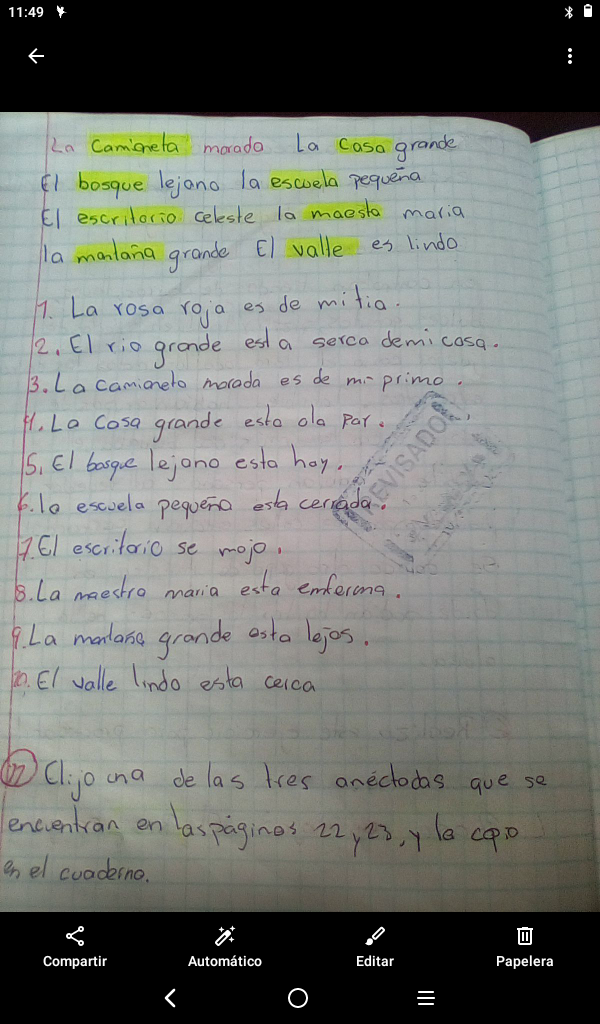 11:49
La Camioneta morada La Casa grande
El bosque lejano la escuela pequeña
El escritorio celeste la maesta maria
la montaña grande El valle es lindo
1. La rosa roja es de mi tia.
2. El rio grande est a serca demi casa.
3. La Camioneta morada es de mi primo.
4. La Casa grande esta ala par.
5. El bosque lejano esta hay.
6. la escuela pequeña esta cerrada.
7. El escritorio se mojo.
8. La maestra maria esta emferma.
9. La montaña grande esta lejos.
10. El valle lindo esta cerca
REVISADO
Elijo una de las tres anéctodas que se
encuentran en las páginas 22 y 23, y la copio
en el cuaderno.
Compartir Automático Editar Papelera